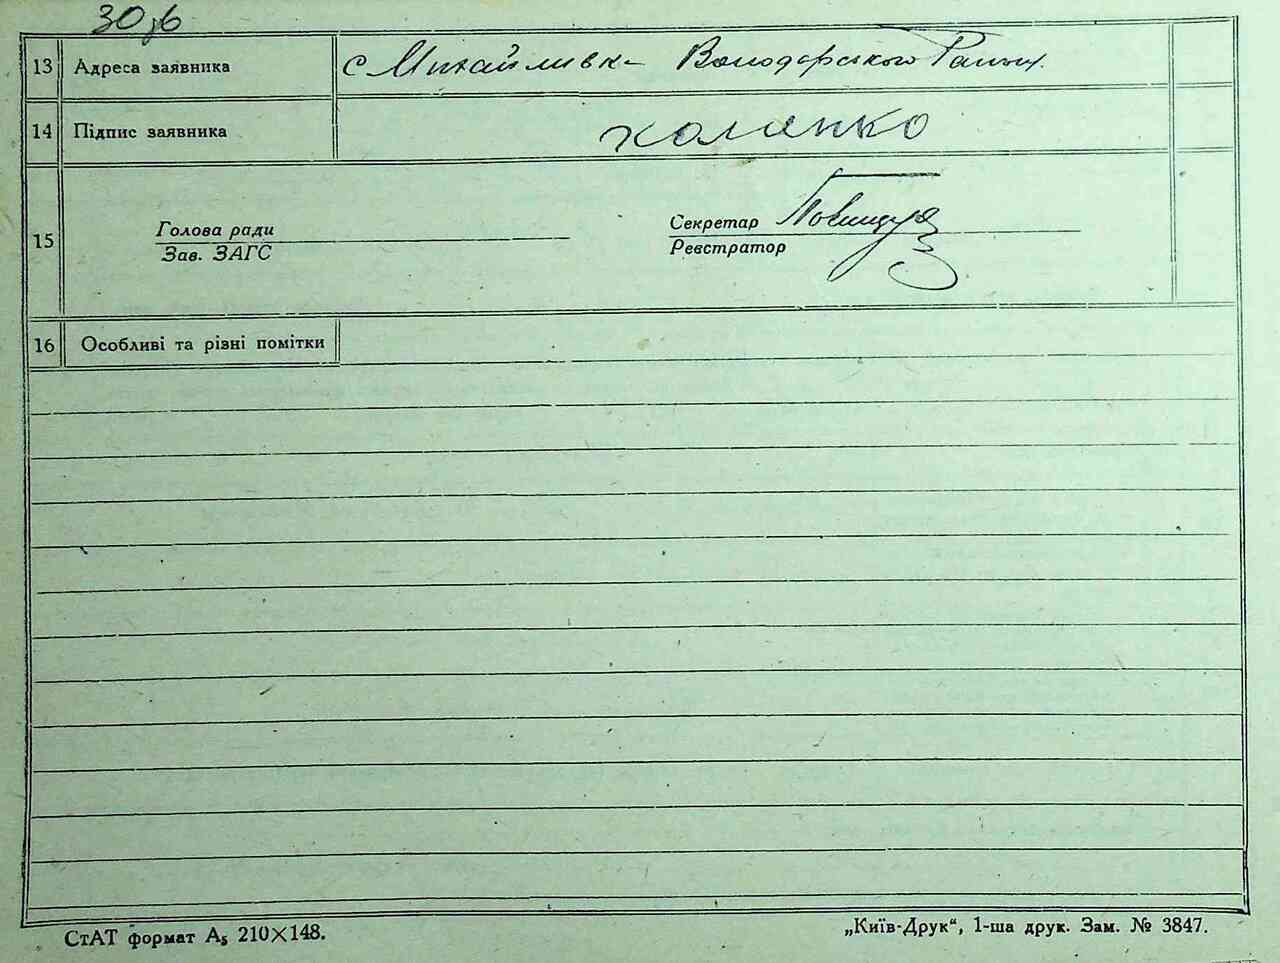 30зв
13 Адреса заявника с Михайливка Володарського Району.
14 Підпис заявника Холяпко
15 Голова ради
Зав. ЗАГС
Секретар
Реєстратор
16 Особливі та різні помітки
СтАТ формат А₅ 210×148.
„Київ-Друк“, 1-ша друк. Зам. № 3847.